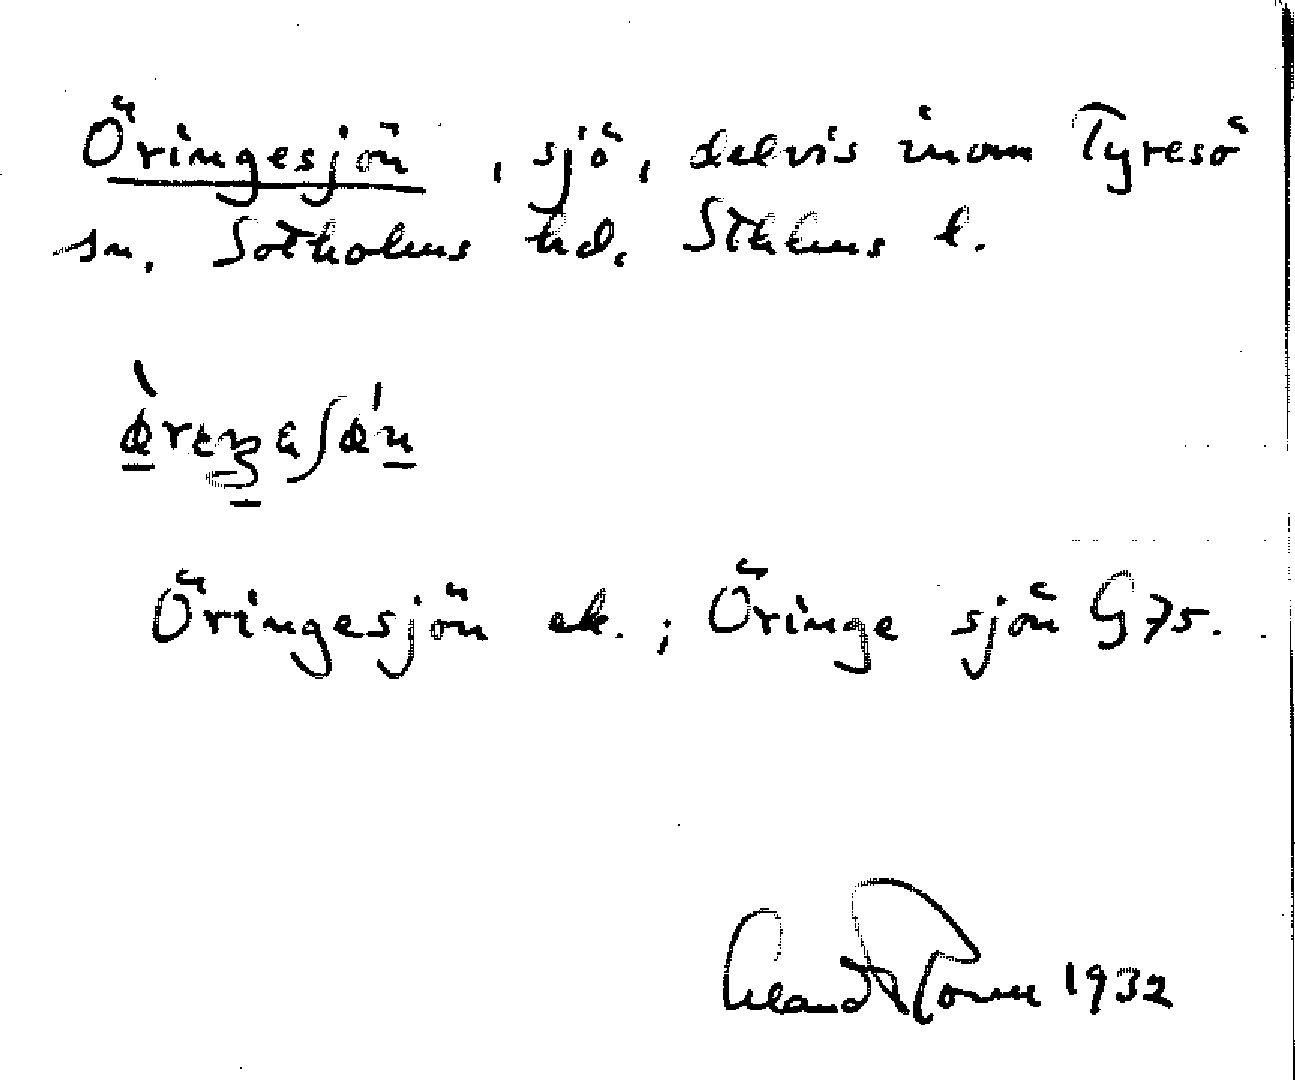 Öringesjön, sjö, delvis inom Tyresö
sn, Sotholms hd. Sthlms l.
Öringesjön ek.; Öringe sjön G 75.
1932